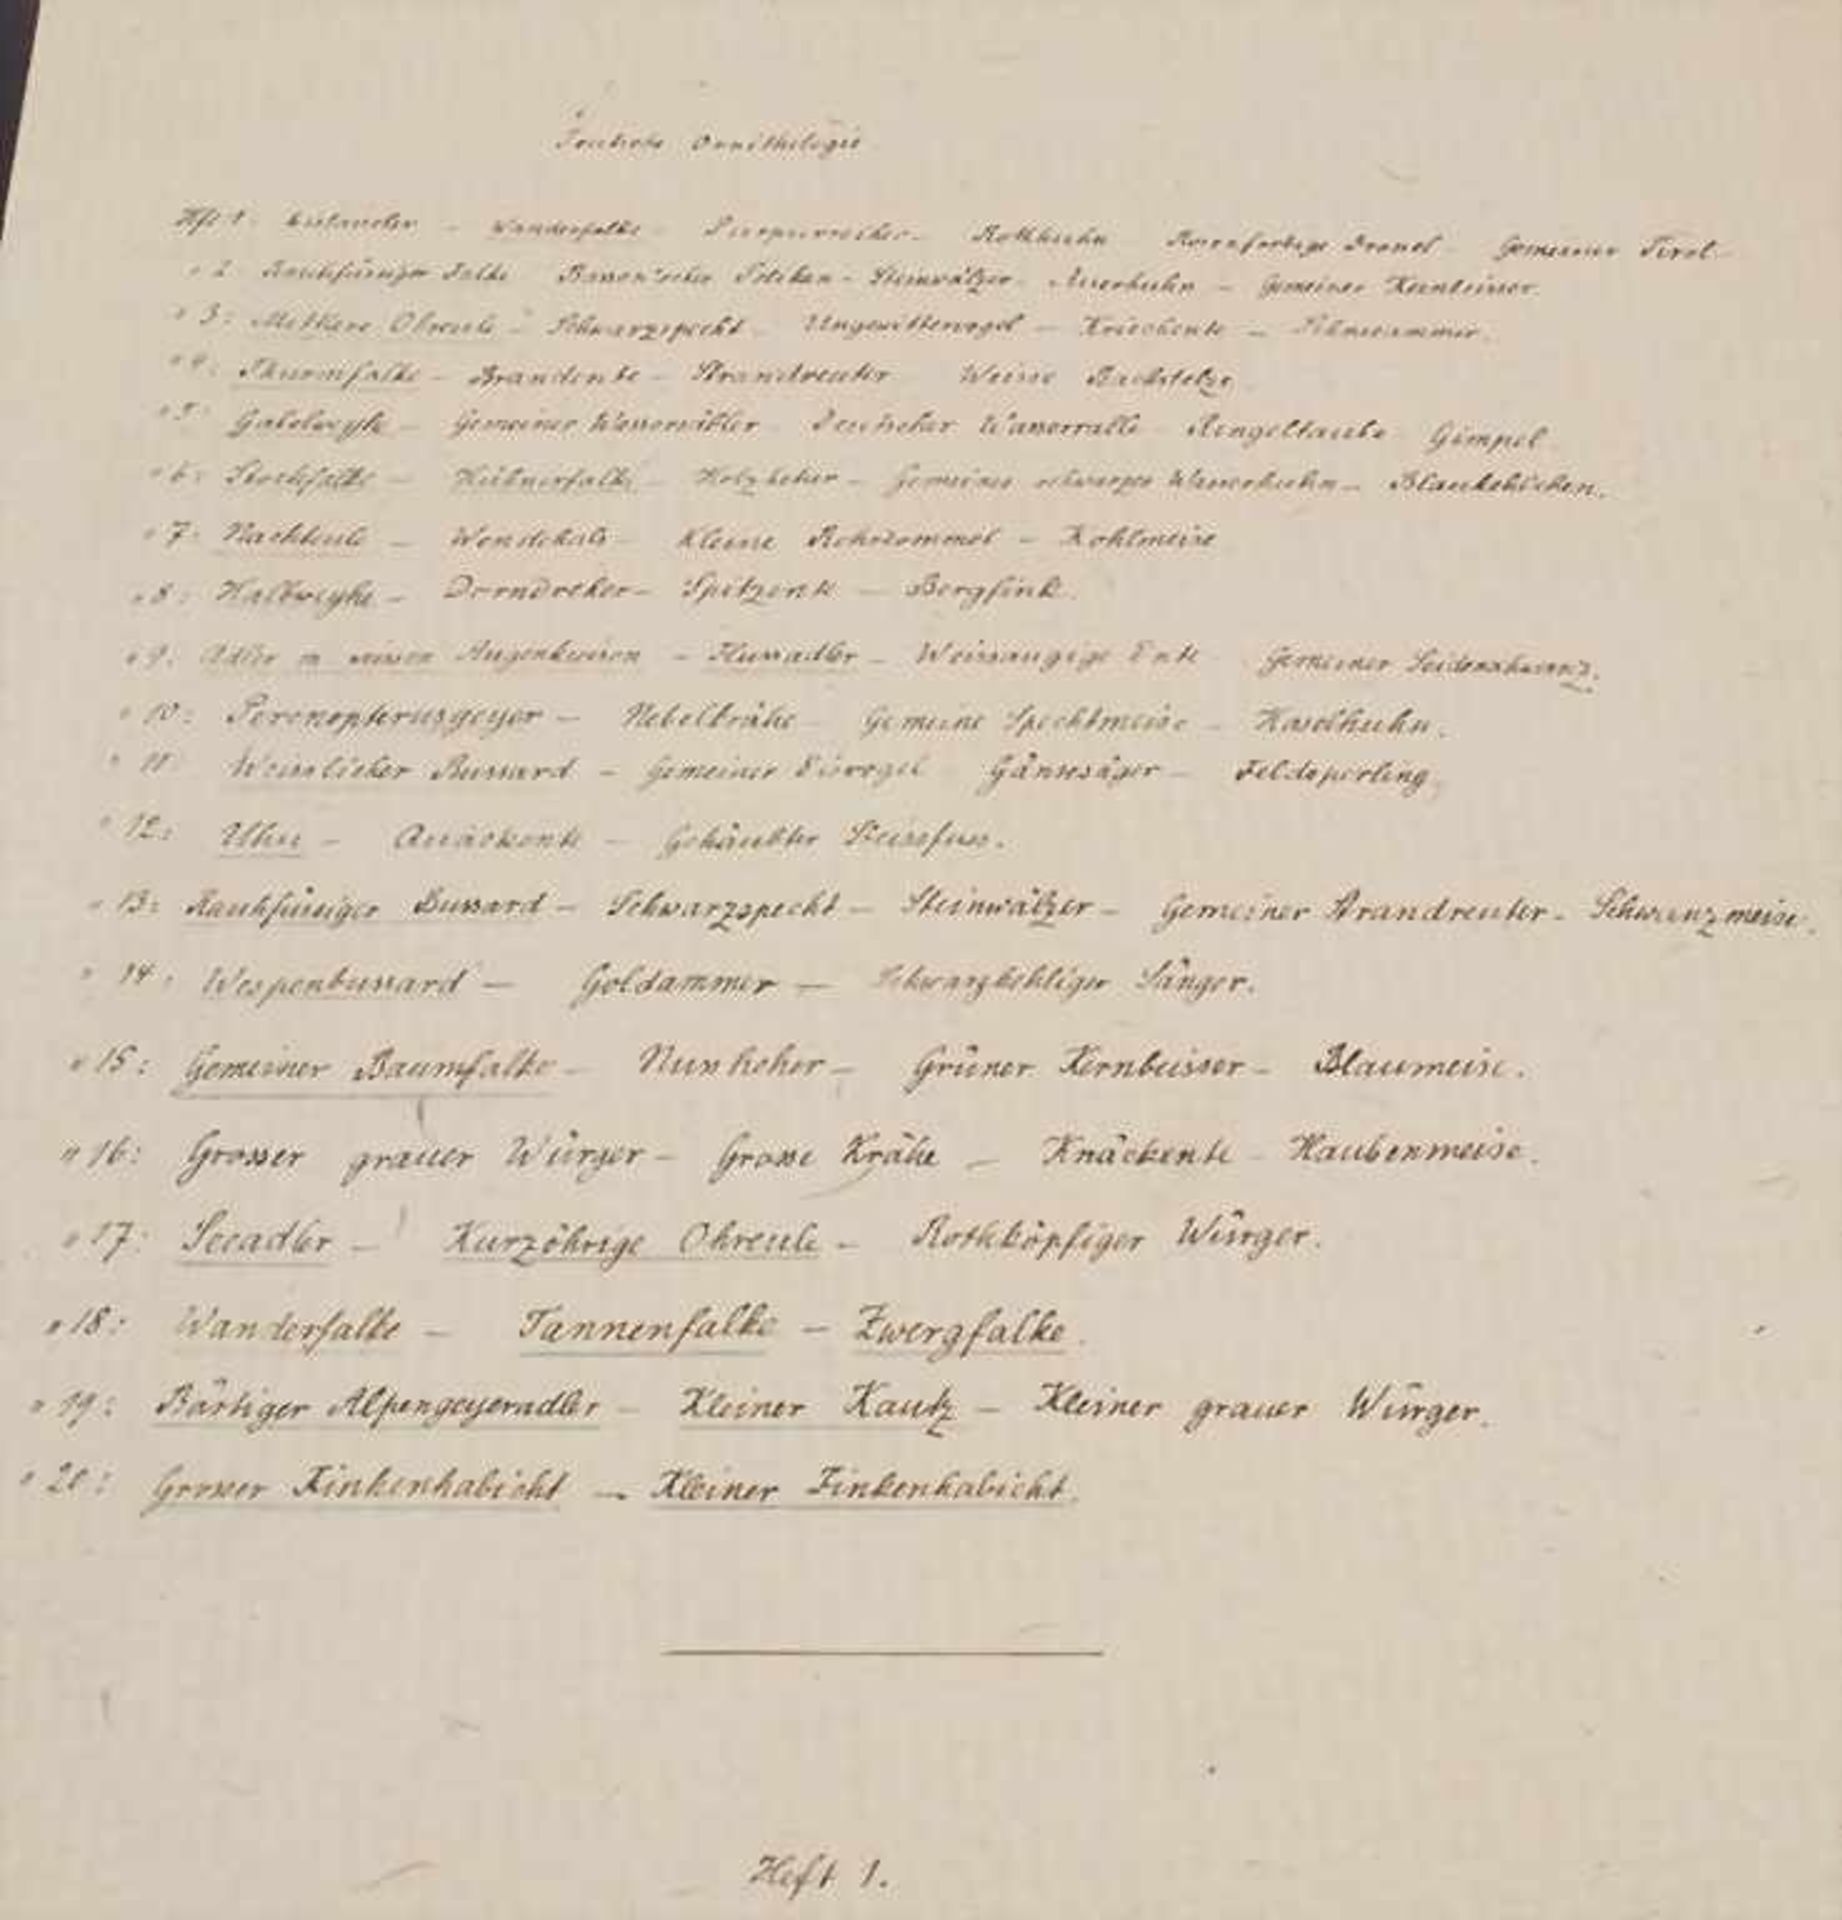 Teutsche Ornithologie
Hft 1: – Wanderfalke – Purpurreiher – Rothhuhn – Rosenfarbige Drossel – Gemeiner Pirol –
" 2: Rauchfüssiger Falke – Pelikan – Steinwälzer – Auerhuhn – Gemeiner Kernbeisser.
" 3: Mittlere Ohreule – Schwarzspecht – Ungewittervogel – Kriechente – Schneeammer.
" 4: Thurmfalke – Brandente – Strandreuter – Weisse Bachstelze
" 5: Gabelweyhe – Gemeiner Wassersäbler – Teutscher Wasserralle – Ringeltaube – Gimpel
" 6: Stockfalke – Hühnerfalke – Holzheher – Gemeines schwarzes Wasserhuhn – Blaukehlchen.
" 7: Nachteule – Wendehals – Kleine Rohrdommel – Kohlmeise
" 8: Halbweyhe – Dorndreher – Spitzente – Bergfink.
" 9: Adler m weissen Augenkreisen – Flussadler – Weissaugige Ente – Gemeiner Seidenschwanz.
" 10: Percnopterusgeyer – Nebelkrähe – Gemeine Spechtmeise – Haselhuhn.
" 11: Weisslicher Bussard – Gemeiner Eisvogel – Gänsesäger – Feldsperling.
" 12: Uhu – – Gehäubter Steissfuss.
" 13: Rauhfüssiger Bussard – Schwarzspecht – Steinwälzer – Gemeiner Strandreuter – Schwanzmeise.
" 14: Wespenbussard – Goldammer – Schwarzkehliger Sänger.
" 15: Gemeiner Baumfalke – Nussheher – Grüner Kernbeisser – Blaumeise.
" 16: Grosser grauer Würger – Grosse Krähe – Knäckente – Haubenmeise.
" 17: Seeadler – Kurzöhrige Ohreule – Rothköpfiger Würger.
" 18: Wanderfalke – Tannenfalke – Zwergfalke.
" 19: Bärtiger Alpengeyeradler – Kleiner Kautz – Kleiner grauer Würger.
" 20: Grosser Finkenhabicht – Kleiner Finkenhabicht.
Heft 1.